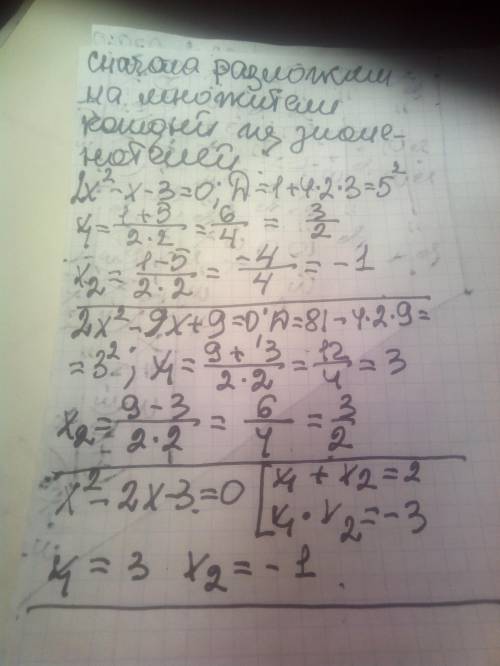 сначала разложим
на множители
каждый из знаме-
нателей
2x²-x-3=0; D=1+4·2·3=5²
x₁=(1+5)/(2·2)=6/4=3/2
x₂=(1-5)/(2·2)=-4/4=-1
2x²-9x+9=0; D=81-4·2·9=
=3²; x₁=(9+3)/(2·2)=12/4=3
x₂=(9-3)/(2·2)=6/4=3/2
x²-2x-3=0 [x₁+x₂=2
x₁·x₂=-3
x₁=3 x₂=-1